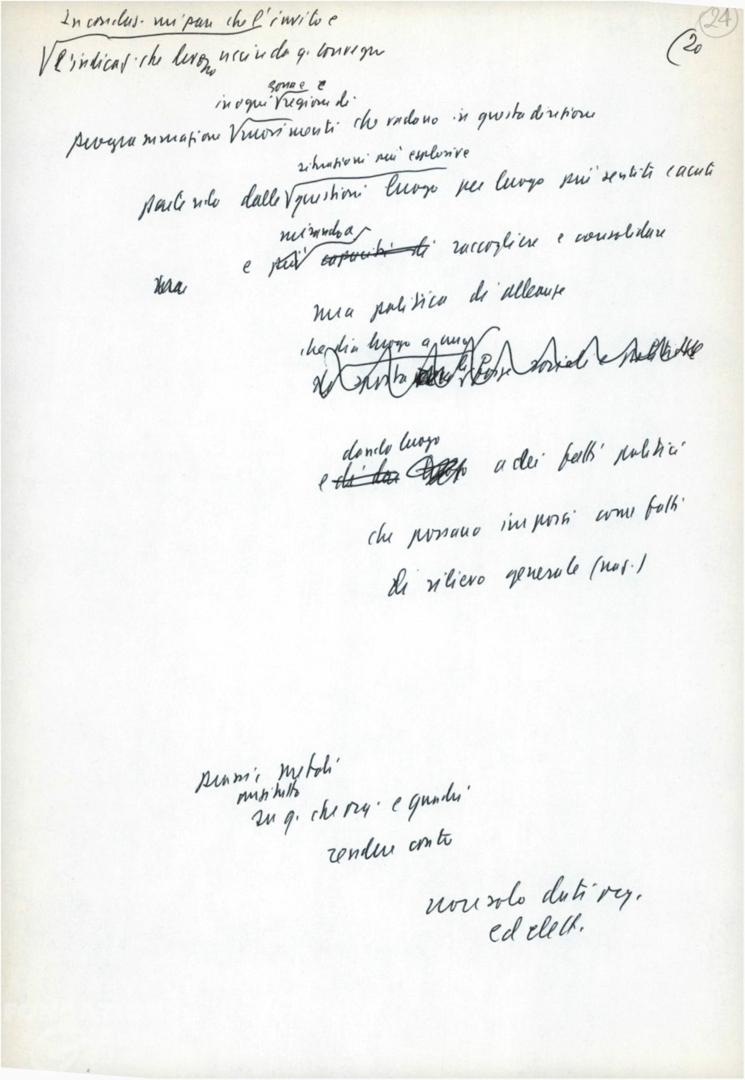 24
(20
In conclus. mi pare che l'invito e
l'indicaz. che
uscire da q. convegno
zona e
in ogni regione di
programmazione movimenti che vadano in questa direzione
situazioni più esplosive
partendo dalle questioni luogo per luogo più sentite e acute
mirando a
e più capacità di raccogliere e consolidare
una politica di alleanze
che dia luogo a una
sociali e politiche
dando luogo
e a dei fatti politici
che possano imporsi come fatti
di rilievo generale (naz.)
su q. che org. e quadri
rendere conto
non solo dati org.
ed elett.